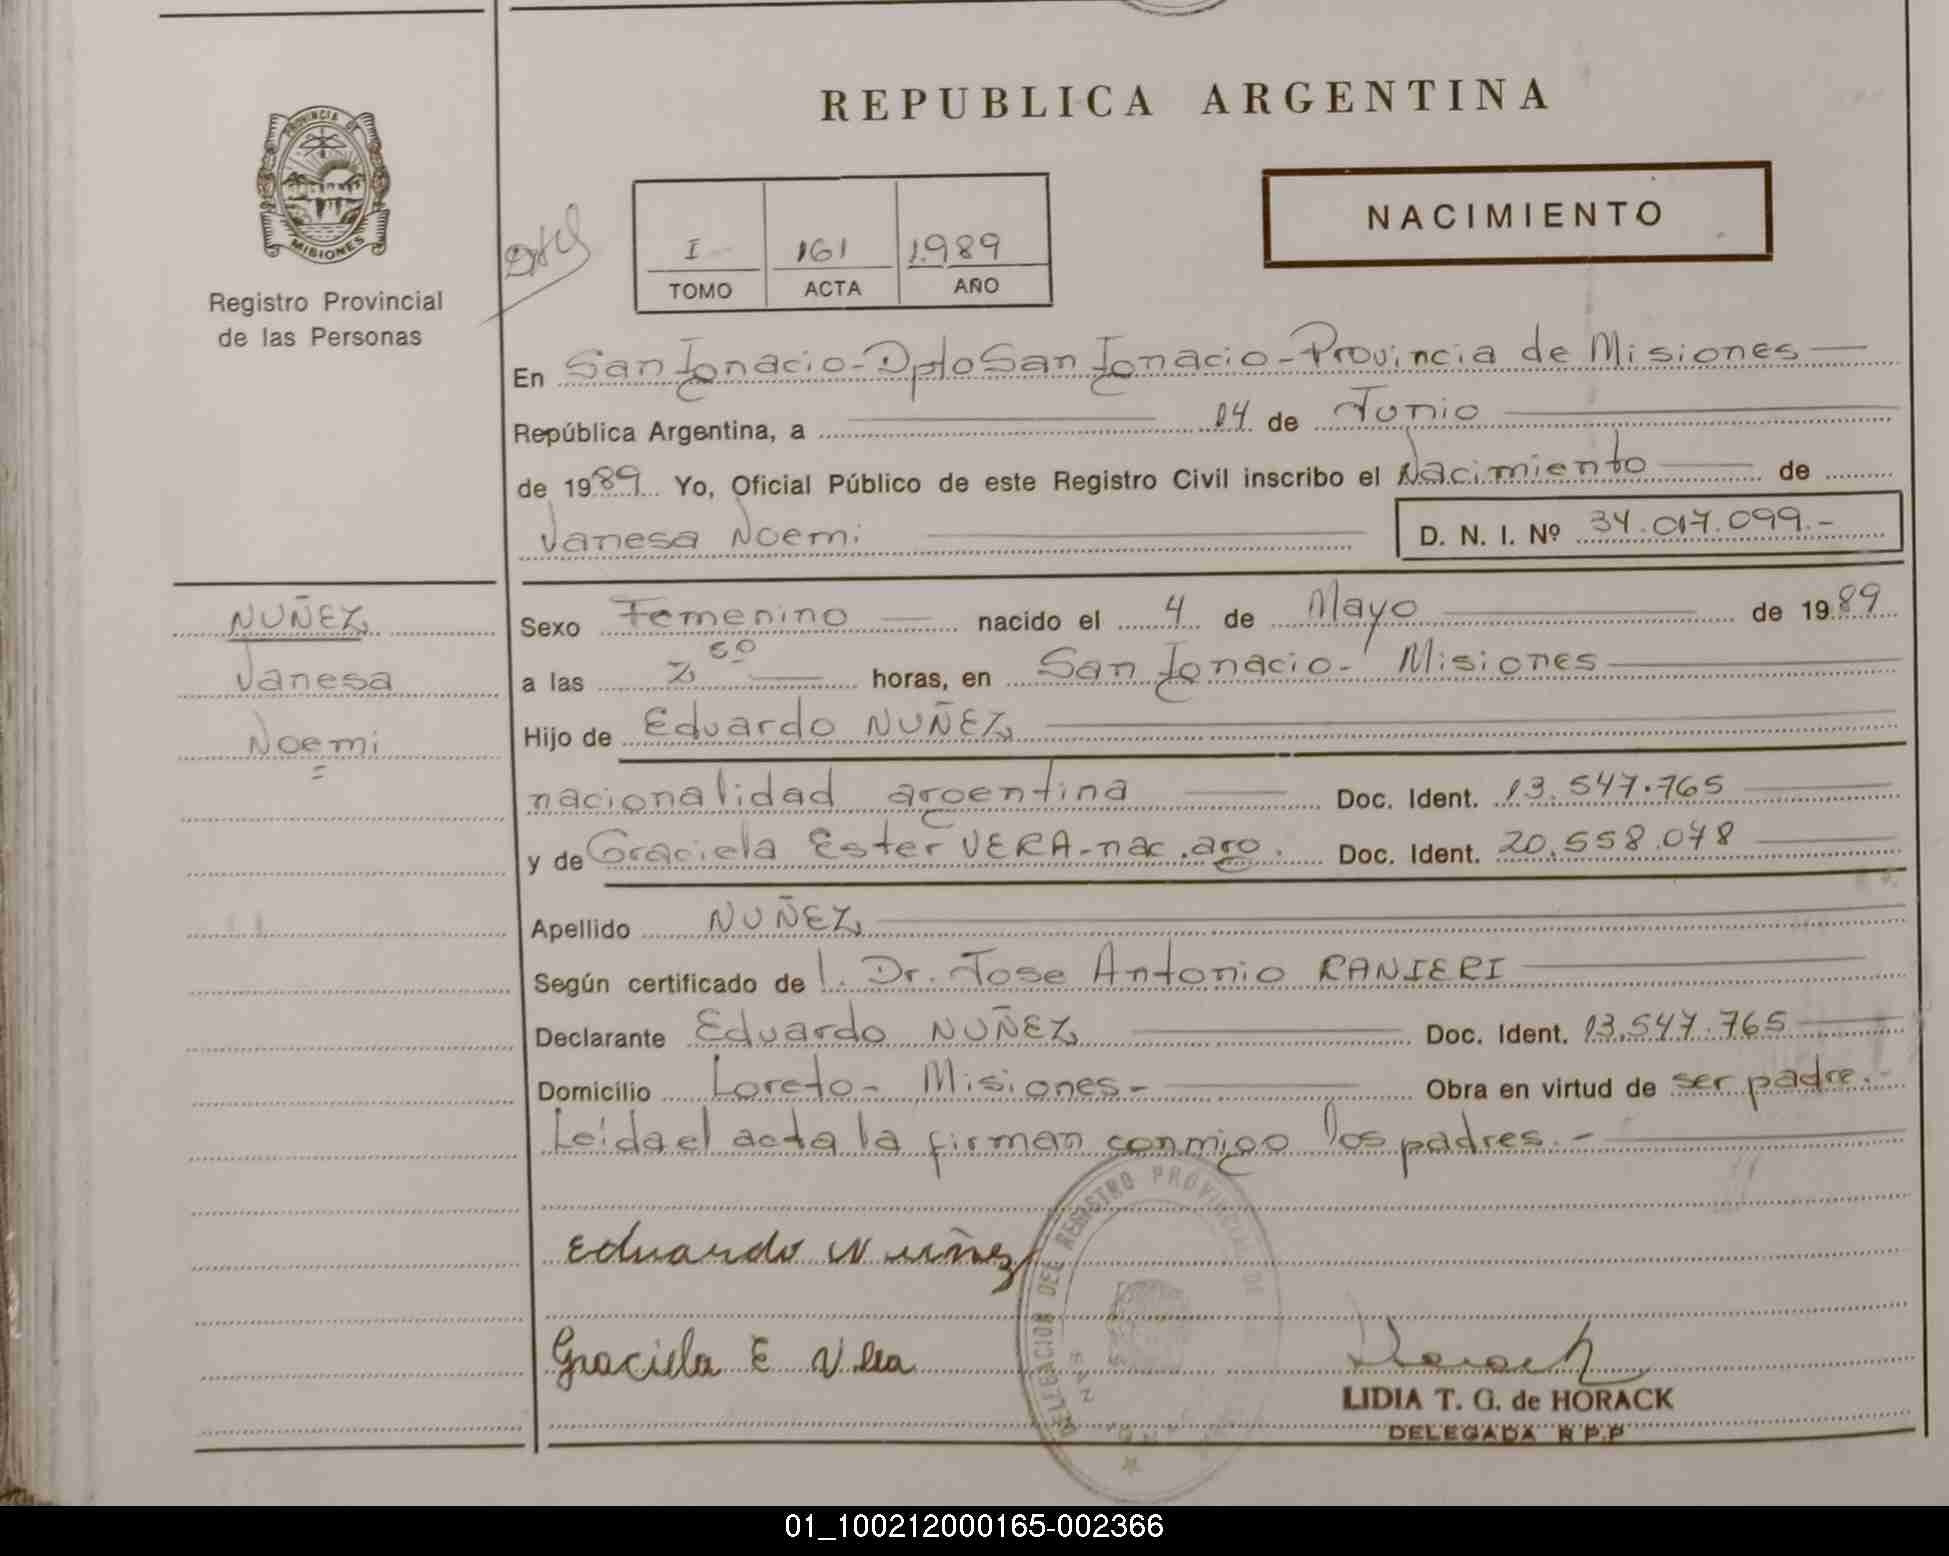 REPUBLICA ARGENTINA
PROVINCIA DE
MISIONES
Registro Provincial
de las Personas
I 161 1.989
TOMO ACTA AÑO
NACIMIENTO
En San Ignacio-Dpto San Ignacio-Provincia de Misiones
República Argentina, a 14 de Junio
de 1989 Yo, Oficial Público de este Registro Civil inscribo el Nacimiento de
Vanesa Noemi
D. N. I. Nº 34.017.099.-
NUÑEZ
Vanesa
Noemi
Sexo Femenino nacido el 4 de Mayo de 1989
a las horas, en San Ignacio- Misiones
Hijo de Eduardo NUÑEZ
nacionalidad argentina Doc. Ident. 13.547.765
y de Graciela Ester VERA-nac.arg. Doc. Ident. 20.558.078
Apellido NUÑEZ
Según certificado de l. Dr. Jose Antonio RANIERI
Declarante Eduardo NUÑEZ Doc. Ident. 13.547.765
Domicilio Loreto- Misiones- Obra en virtud de ser padre.-
Leida el acta la firman conmigo los padres.-
DELEGACION DEL REGISTRO PROVINCIAL DE
Eduardo Nuñez
Graciela E Vera
Horack
LIDIA T. G. de HORACK
DELEGADA R P.P
01_100212000165-002366